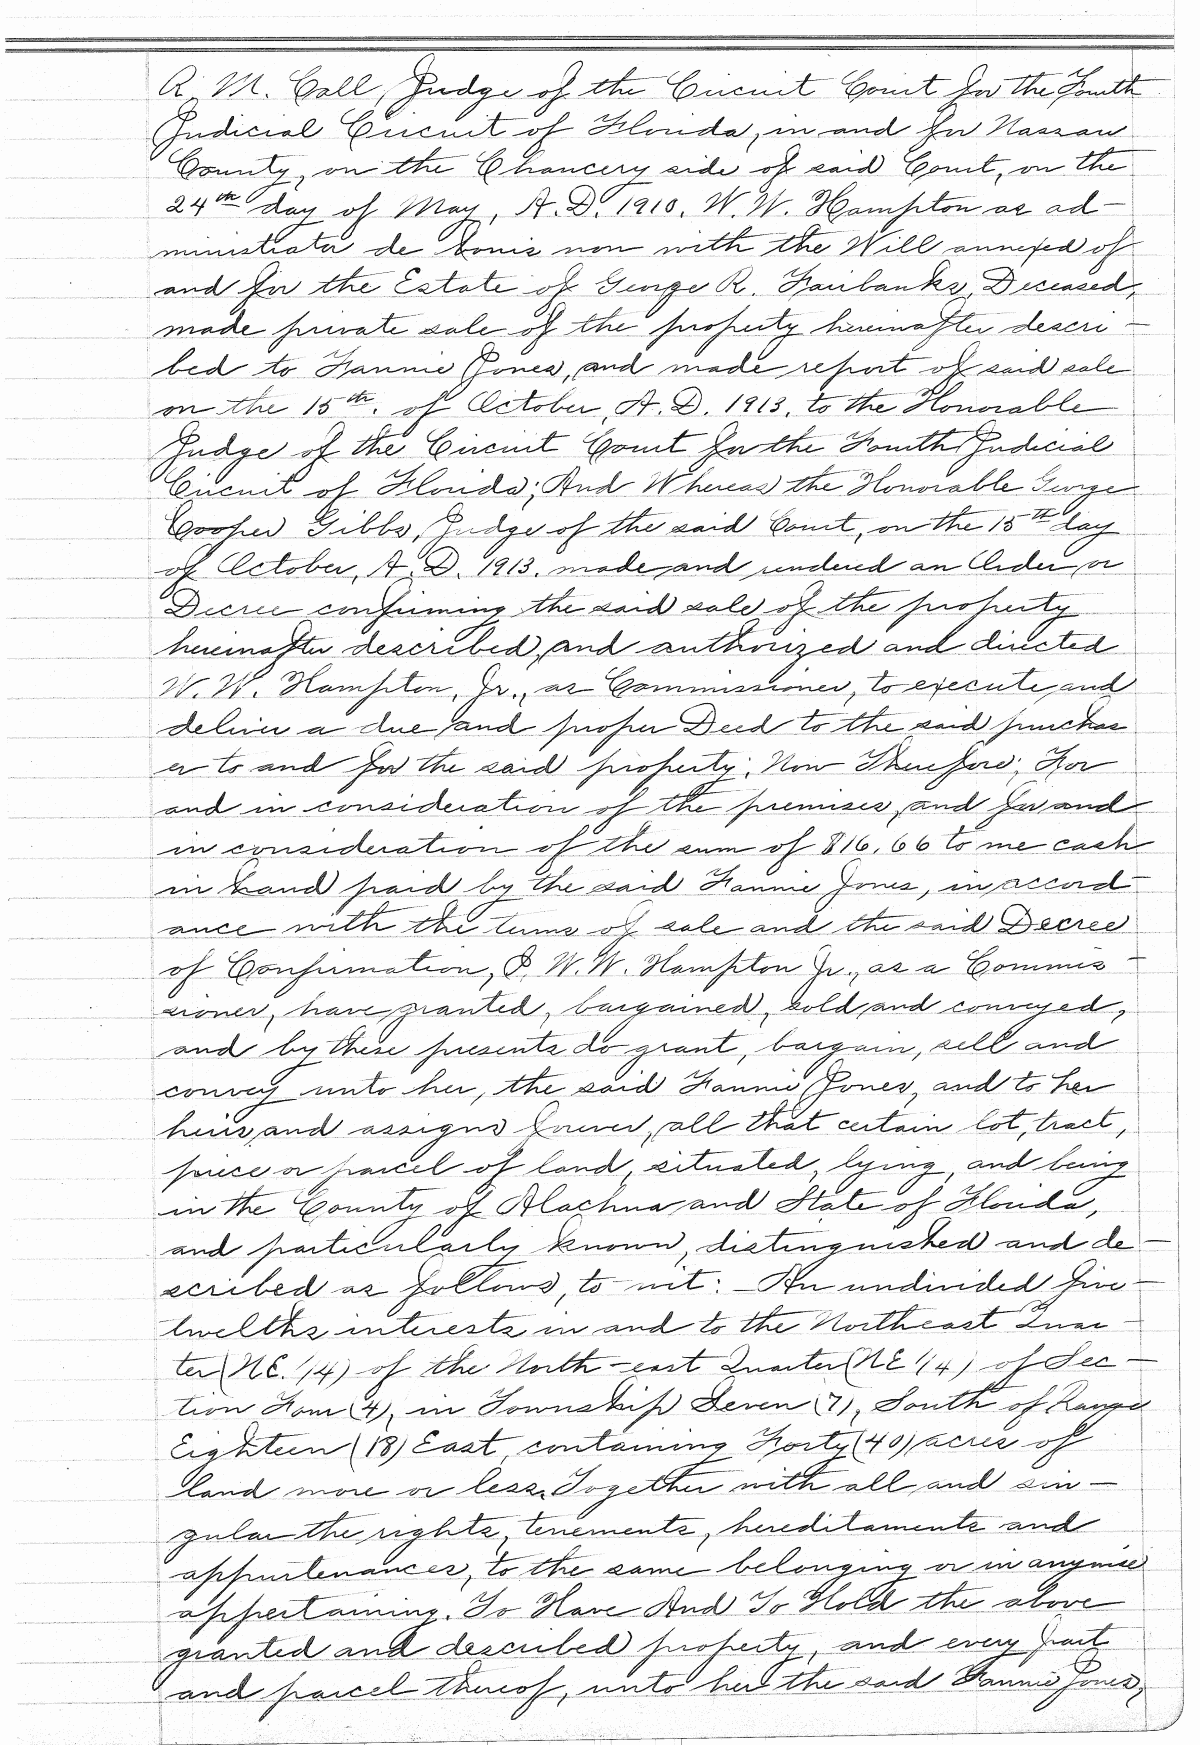 R. M. Call, Judge of the Circuit Court for the Fourth
Judicial Circuit of Florida, in and for Nassau
County, on the Chancery side of said Court, on the
24th day of May, A.D. 1910. W. W. Hampton as ad-
ministrator de bonis non with the Will annexed of
and for the Estate of George R. Fairbanks, Deceased,
made private sale of the property hereinafter descri-
bed to Fannie Jones, and made report of said sale
on the 15th. of October, A.D. 1913, to the Honorable
Judge of the Circuit Court for the Fourth Judicial
Circuit of Florida; And Whereas the Honorable George
Cooper Gibbs, Judge of the said Court, on the 15th day
of October, A.D. 1913. made and rendered an Order or
Decree confirming the said sale of the property
hereinafter described, and authorized and directed
W. W. Hampton, Jr., as Commissioner, to execute and
deliver a due and proper Deed to the said purchas
er to and for the said property; Now Therefore; For
and in consideration of the premises, and for and
in consideration of the sum of $16.66 to me cash
in hand paid by the said Fannie Jones, in accord-
ance with the terms of sale and the said Decree
of Confirmation, I, W. W. Hampton Jr., as a Commis-
sioner, have granted, bargained, sold and conveyed,
and by these presents do grant, bargain, sell and
convey unto her, the said Fannie Jones, and to her
heirs, and assigns forever, all that certain lot, tract,
piece or parcel of land, situated, lying, and being
in the County of Alachua and State of Florida,
and particularly known, distinguished and de-
scribed as follows, to wit: - An undivided five-
twelths interests in and to the Northeast Quar-
ter (NE. 1/4) of the North-east Quarter (NE 1/4) of Sec-
tion Four (4), in Township Seven (7), South of Range
Eighteen (18) East, containing Forty (40) acres of
land more or less. Together with all and sin-
gular the rights, tenements, hereditaments and
appurtenances, to the same belonging or in anywise
appertaining. To Have And To Hold the above
granted and described property, and every part
and parcel thereof, unto her the said Fannie Jones,